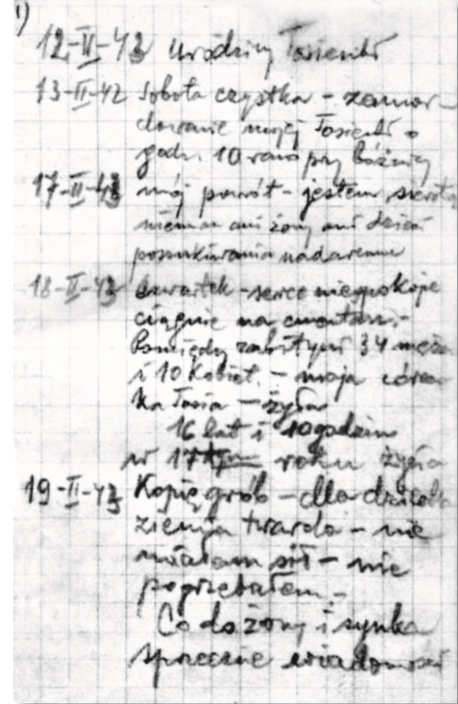 1)
12-II-43 Urodziny Tosieńki
13-II-42 Sobota czystka - zamor
dowanie mojej Tosieńki o
godz. 10 rano przy bóżnicy
17-II-43 mój powrót - jestem sierotą
niemam ani żony ani dzieci
poszukiwania nadaremne
18-II-43 czwartek - serce niespokojne
ciągnie na cmentarz. -
Pomiędzy zabitymi 34 mężcz
i 10 Kobiet. - moja córecz
ka Tosia - żyła
16 lat i 10 godzin
w 17 roku życia
19-II-43 Kopię grób - dla dziecka
ziemia twarda - nie
miałem sił - nie
pogrzebałem -
Co do żony i synka
sprzeczne wiadomości